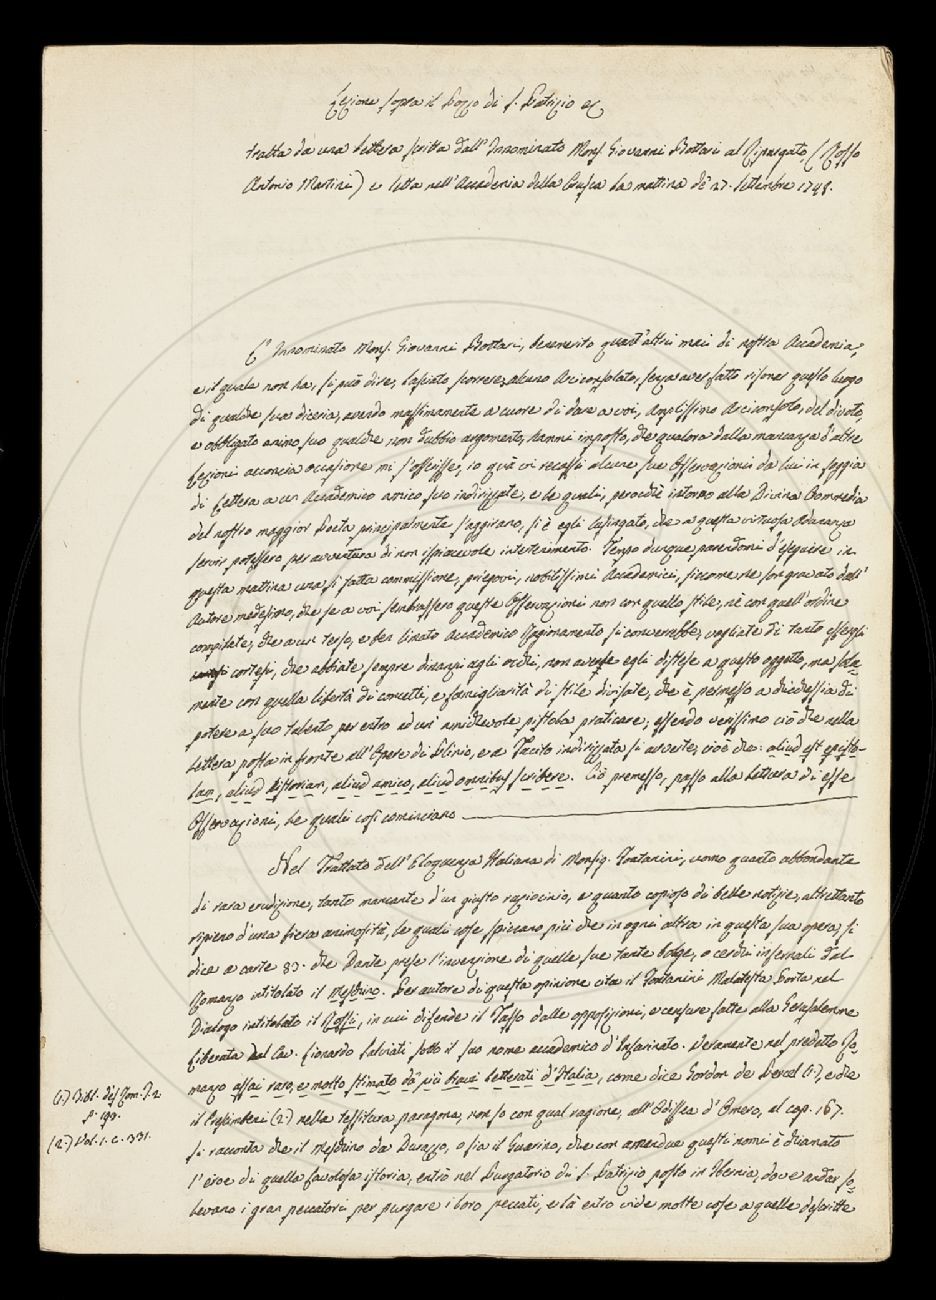 Lezione sopra il Pozzo di S. Patrizio es
tratta da una Lettera scritta dall' Innominato Mons. Giovanni Bottari al Ripurgato (Rosso
Antonio Martini) e letta nell' Accademia della Crusca la mattina de' 27. Settembre 1748.
L' Innominato Mons. Giovanni Bottari, benemerito quant' altri mai di nostra Accademia,
e il quale non ha, si può dire, lasciato scorrere alcuno Arciconsolato, senza aver fatto risonar questo luogo
di qualche sua diceria, avendo massimamente a cuore di dare a voi, Amplissimo Arciconsolo, del divoto,
e obbligato animo suo qualche non dubbio argomento, hammi imposto, che qualora dalla mancanza d' altre
Lezioni acconcia occasione mi s' offerisse, io quà vi recassi alcune sue Osservazioni da lui in foggia
di Lettera a un Accademico amico suo indirizzate, e le quali, perocchè intorno alla Divina Commedia
del nostro maggior Poeta principalmente s' aggirano, si è egli lusingato, che a questa virtuosa Adunanza
servir potessero per avventura di non ispiacevole intertenimento. Tempo dunque parendomi d' eseguire in
questa mattina una sì fatta commissione, priegovi, nobilissimi Accademici, siccome ne son gravato dall'
Autore medesimo, che se a voi sembrassero queste Osservazioni non con quello stile, nè con quell' ordine
compilate, che a un terso, e ben limato Accademico Ragionamento si converrebbe, vogliate di tanto essergli
cortesi, che abbiate sempre dinanzi agli occhi, non averle egli distese a questo oggetto, ma sola=
mente con quella libertà di concetti, e famigliarità di stile divisate, che è permesso a chicchessia di
potere a suo talento per entro ad un' amichevole pistola praticare; essendo verissimo ciò che nella
Lettera posta in fronte all' Opere di Plinio, e a Tacito indirizzata si avverte, cioè che: aliud est episto=
lam, aliud historiam, aliud amico, aliud omnibus scribere. Ciò premesso, passo alla lettura di esse
Osservazioni, le quali così cominciano
Nel Trattato dell' Eloquenza Italiana di Monsig. Fontanini, uomo quanto abbondante
di rara erudizione, tanto mancante d' un giusto raziocinio, e quanto copioso di belle notizie, altrettanto
ripieno d' una fiera animosità, le quali cose spiccano più che in ogni altra in questa sua opera, si
dice a carte 83. che Dante prese l' invenzione di quelle sue tante bolge, o cerchi infernali dal
Romanzo intitolato il Meschino. Per autore di questa opinione cita il Fontanini Malatesta Porta nel
Dialogo intitolato il Rossi, in cui difende il Tasso dalle opposizioni, e censure fatte alla Gerusalemme
Liberata dal Cav. Lionardo Salviati sotto il suo nome accademico d' Infarinato. Veramente nel predetto Ro=
manzo assai raro, e molto stimato da' più bravi letterati d' Italia, come dice Gordon de Percel (1.), e che
il Crescimbeni (2.) nella testura paragona, non so con qual ragione, all' Odissea d' Omero, al cap. 167.
si racconta che il Meschino da Durazzo, o sia il Guerino, che con amendue questi nomi è chiamato
l' eroe di quella favolosa istoria, entrò nel Purgatorio di S. Patrizio posto in Ibernia, dove andar so=
levano i gran peccatori per purgare i loro peccati, e là entro vide molte cose a quelle descritte
(1.) Bibl. des Rom. T. 2.
p. 193.
(2.) Vol. 1. c. 331.